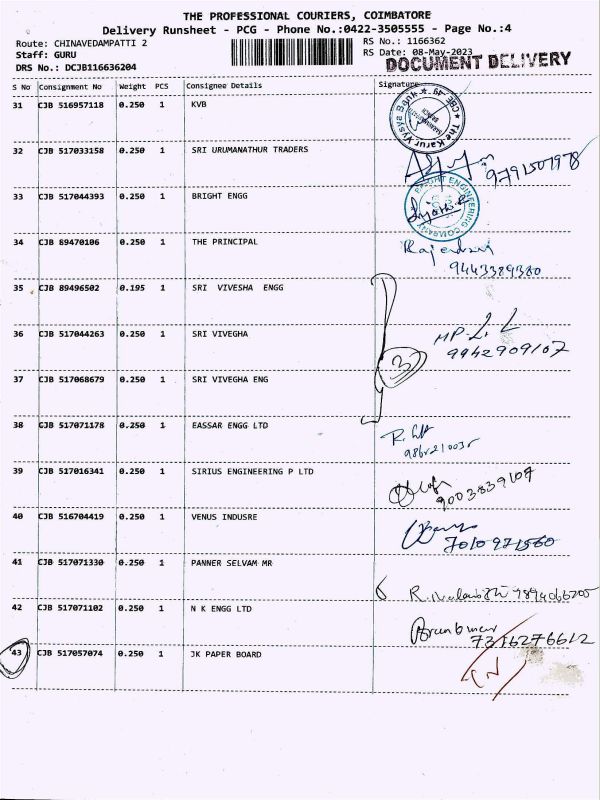 THE PROFESSIONAL COURIERS, COIMBATORE
Delivery Runsheet - PCG - Phone No.:0422-3505555 - Page No.:4
Route: CHINAVEDAMPATTI 2
RS No.: 1166362
Staff: GURU
RS Date: 08-May-2023
DRS No.: DCJB116636204
DOCUMENT DELIVERY
S No Consignment No Weight PCS Consignee Details Signature
31 CJB 516957118 0.250 1 KVB
The Karur Vysya Bank
32 CJB 517033158 0.250 1 SRI URUMANATHUR TRADERS
9791507978
33 CJB 517044393 0.250 1 BRIGHT ENGG
BRIGHT ENGINEERING COMPANY
34 CJB 89470106 0.250 1 THE PRINCIPAL
9443389380
35 CJB 89496502 0.195 1 SRI VIVESHA ENGG
36 CJB 517044263 0.250 1 SRI VIVEGHA
9942909107
3
37 CJB 517068679 0.250 1 SRI VIVEGHA ENG
38 CJB 517071178 0.250 1 EASSAR ENGG LTD
39 CJB 517016341 0.250 1 SIRIUS ENGINEERING P LTD
9003839107
40 CJB 516704419 0.250 1 VENUS INDUSRE
41 CJB 517071330 0.250 1 PANNER SELVAM MR
42 CJB 517071102 0.250 1 N K ENGG LTD
7316276612
43 CJB 517057074 0.250 1 JK PAPER BOARD